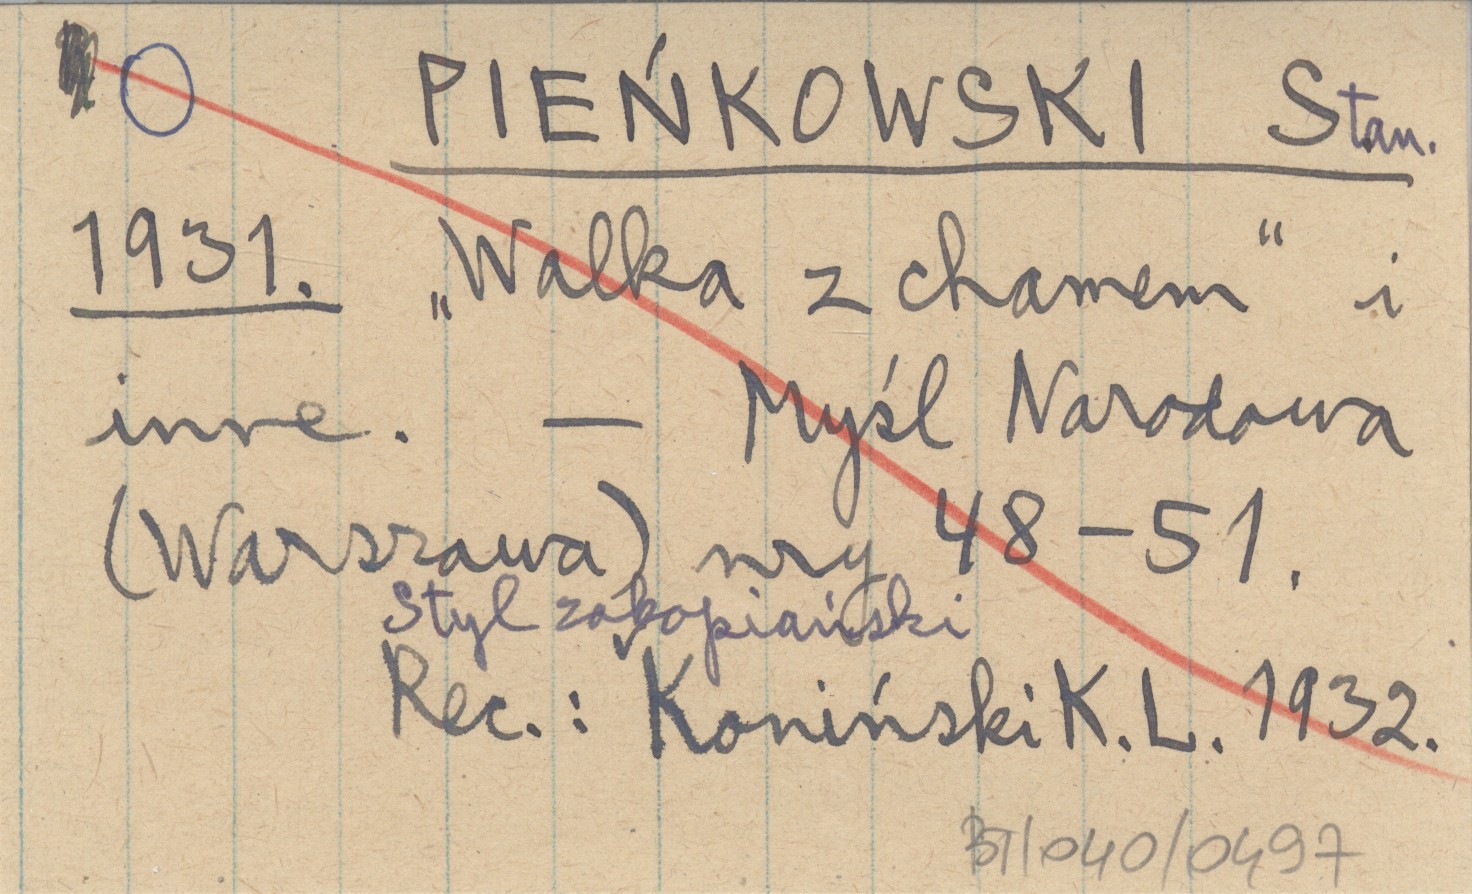 PIEŃKOWSKI Stan.
1931. „Walka z chamem“ i
inne. — Myśl Narodowa
(Warszawa) nry 48-51.
Styl zakopiański
Rec.: Koniński K. L. 1932.
BT/040/0497